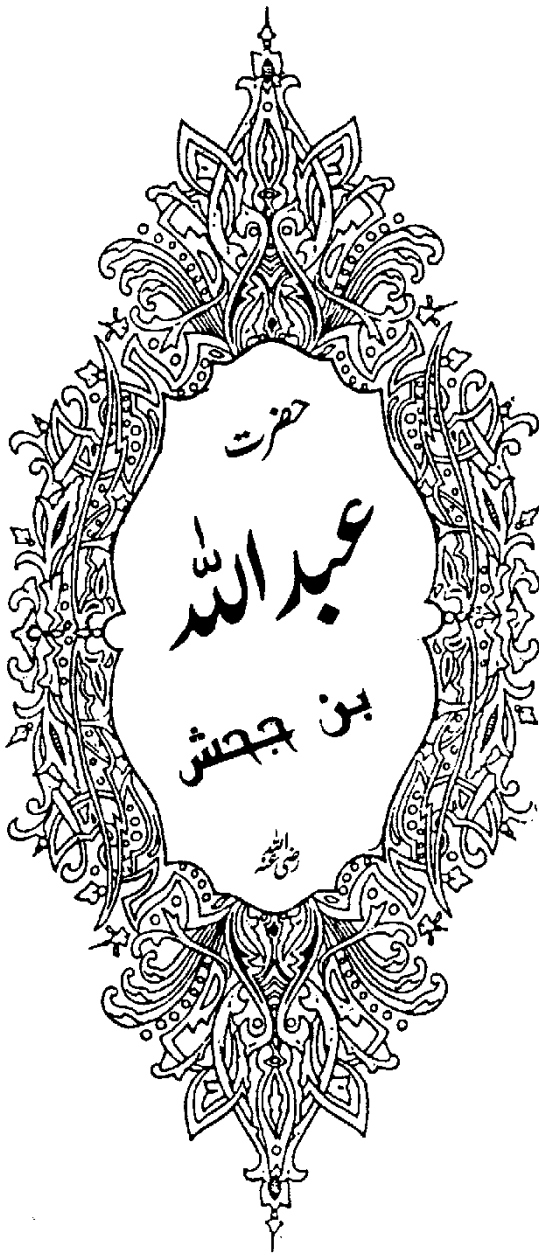 حضرت
عبداللہ
بن جحش
رضی اللہ عنہ